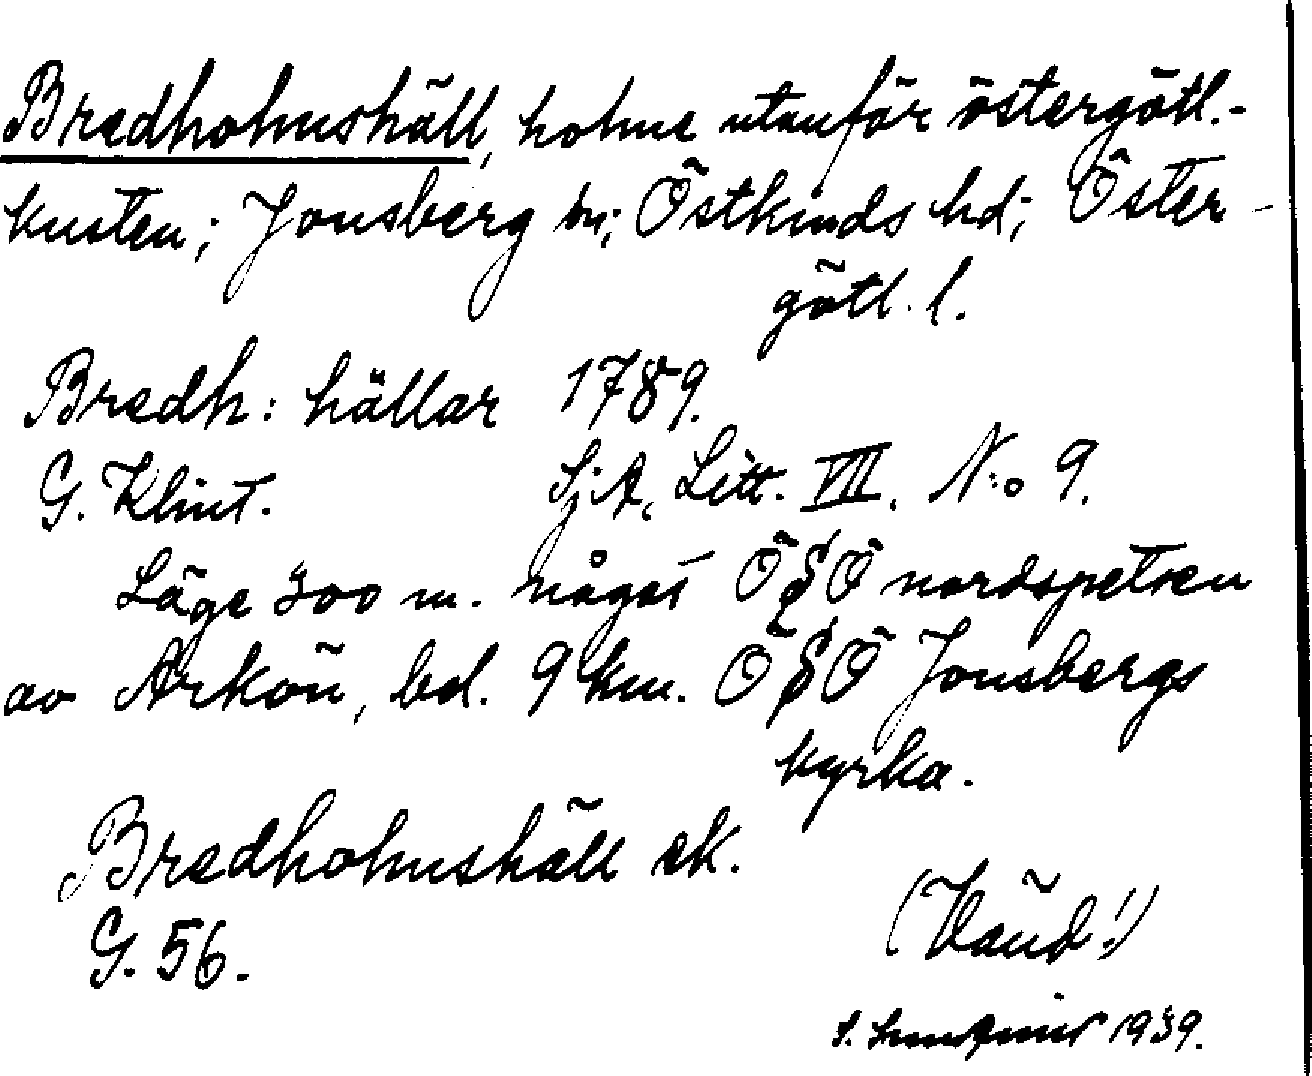 Bredholmshäll, holme utanför östergötl.-
kusten; Jonsberg sn; Östkinds hd; Öster-
götl. l.
Bredh: hällar 1789.
G. Klint. Sj.A. Litt. VII. N:o 9.
Läge 300 m. något ÖSÖ nordspetsen
av Arkön, bel. 9 km. ÖSÖ Jonsbergs
kyrka.
Bredholmshäll ek.
G. 56.
(Vänd!)
1939.